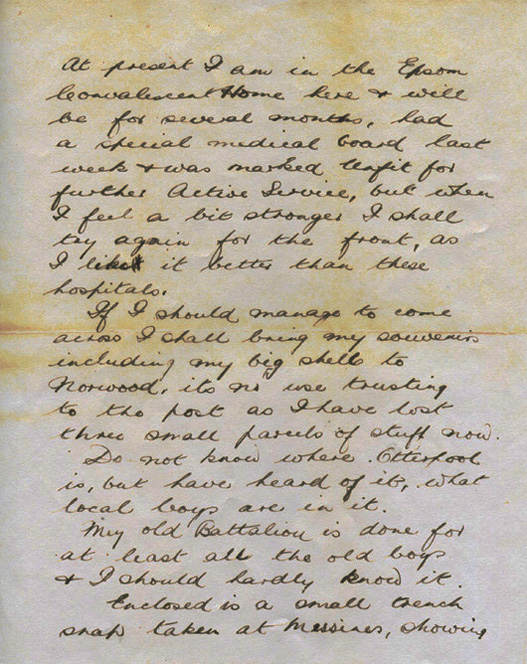 At present I am in the Epsom
Convalescent Home here & will
be for several months, had
a special medical board last
week & was marked Unfit for
further Active Service, but when
I feel a bit stronger I shall
try again for the front, as
I like it better than these
hospitals.
If I should manage to come
across I shall bring my souvenirs
including my big shell to
Norwood, its no use trusting
to the post as I have lost
three small parcels of stuff now.
Do not know where Otterpool
is, but have heard of it, what
local boys are in it.
My old Battalion is done for
at least all the old boys
& I should hardly know it.
Enclosed is a small trench
snap taken at Messines, showing